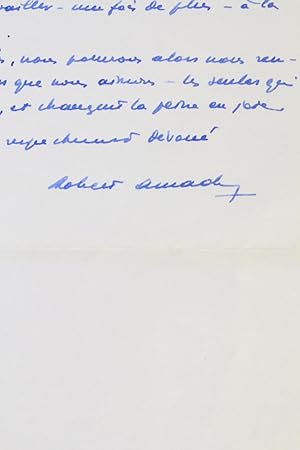 vailler - une fois de plus - à la
, nous pourrons alors nous ren-
que nous aimons - les seules qui
, et changent la peine en joie
respectueusement dévoué
Robert Amadou